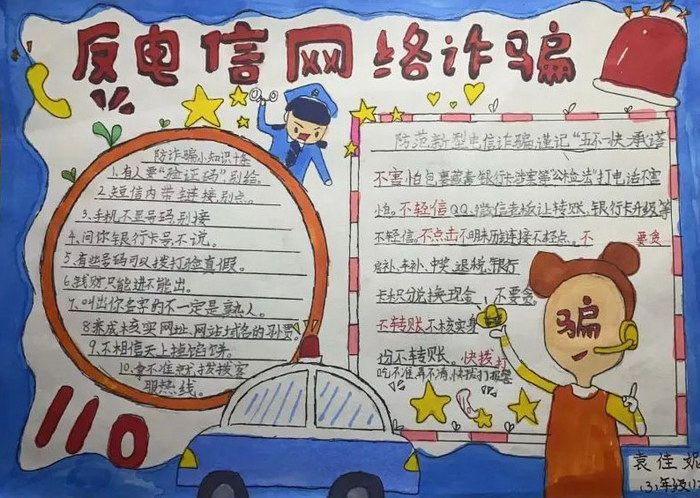 反电信网络诈骗
防诈骗小知识十条
1.有人要"验证码"别给。
2.短信内带链接别点。
3.手机不显号码别接
4.问你银行卡号不说。
5.有些号码可以拨打验真假。
6.钱财只能进不能出。
7.叫出你名字的不一定是熟人。
8.养成核实网址,网站域名的习惯。
9.不相信天上掉馅饼。
10.拿不准就拨拨客
服热线。
110
防范新型电信诈骗,谨记"五不一快"承诺
不害怕包裹藏毒、银行卡涉案等"公检法"打电话不害
怕。不轻信QQ、微信老板让转账、银行卡升级等
不轻信。不点击不明来历连接不轻点。不 要贪
车补、中奖、退税、银行
卡积分兑换现金 不要贪
不转账不核实身
份不转账。快拨打
吃不准,弄不清,快拨打报警
骗
袁佳妮
(3)年级